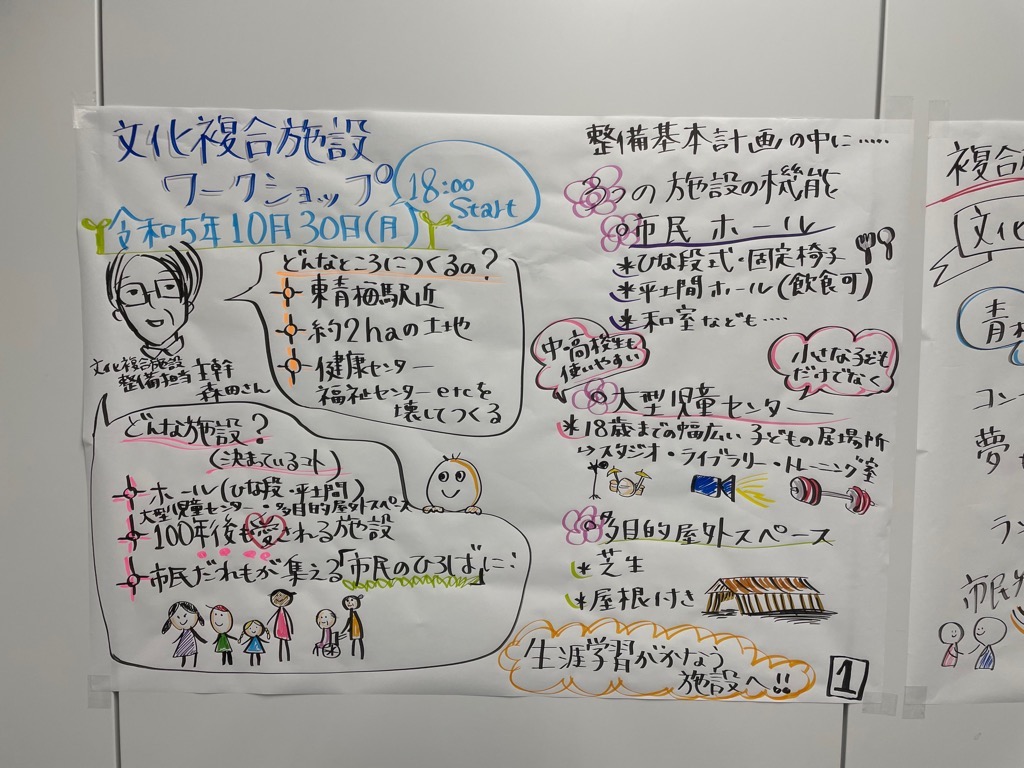 文化複合施設
ワークショップ
18:00
Start
令和5年10月30日(月)
文化複合施設
整備担当主幹
森田さん
どんなところにつくるの？
東青梅駅近
約2haの土地
健康センター
福祉センターetcを
壊してつくる
どんな施設？
(決まっているコト)
ホール(ひな段・平土間)
大型児童センター・多目的屋外スペース
100年後も愛される施設
市民だれもが集える「市民のひろば」に…
整備基本計画の中に……
3つの施設の機能
市民ホール
*ひな段式・固定椅子
*平土間ホール(飲食可)
*和室なども…
中高校生も
使いやすい
小さな子ども
だけでなく
大型児童センター
*18歳までの幅広い子どもの居場所
→スタジオ・ライブラリー・トレーニング室
多目的屋外スペース
*芝生
*屋根付き
生涯学習がかなう
施設へ!!
1
複合
文化
青梅
コン
夢
ラン
市民